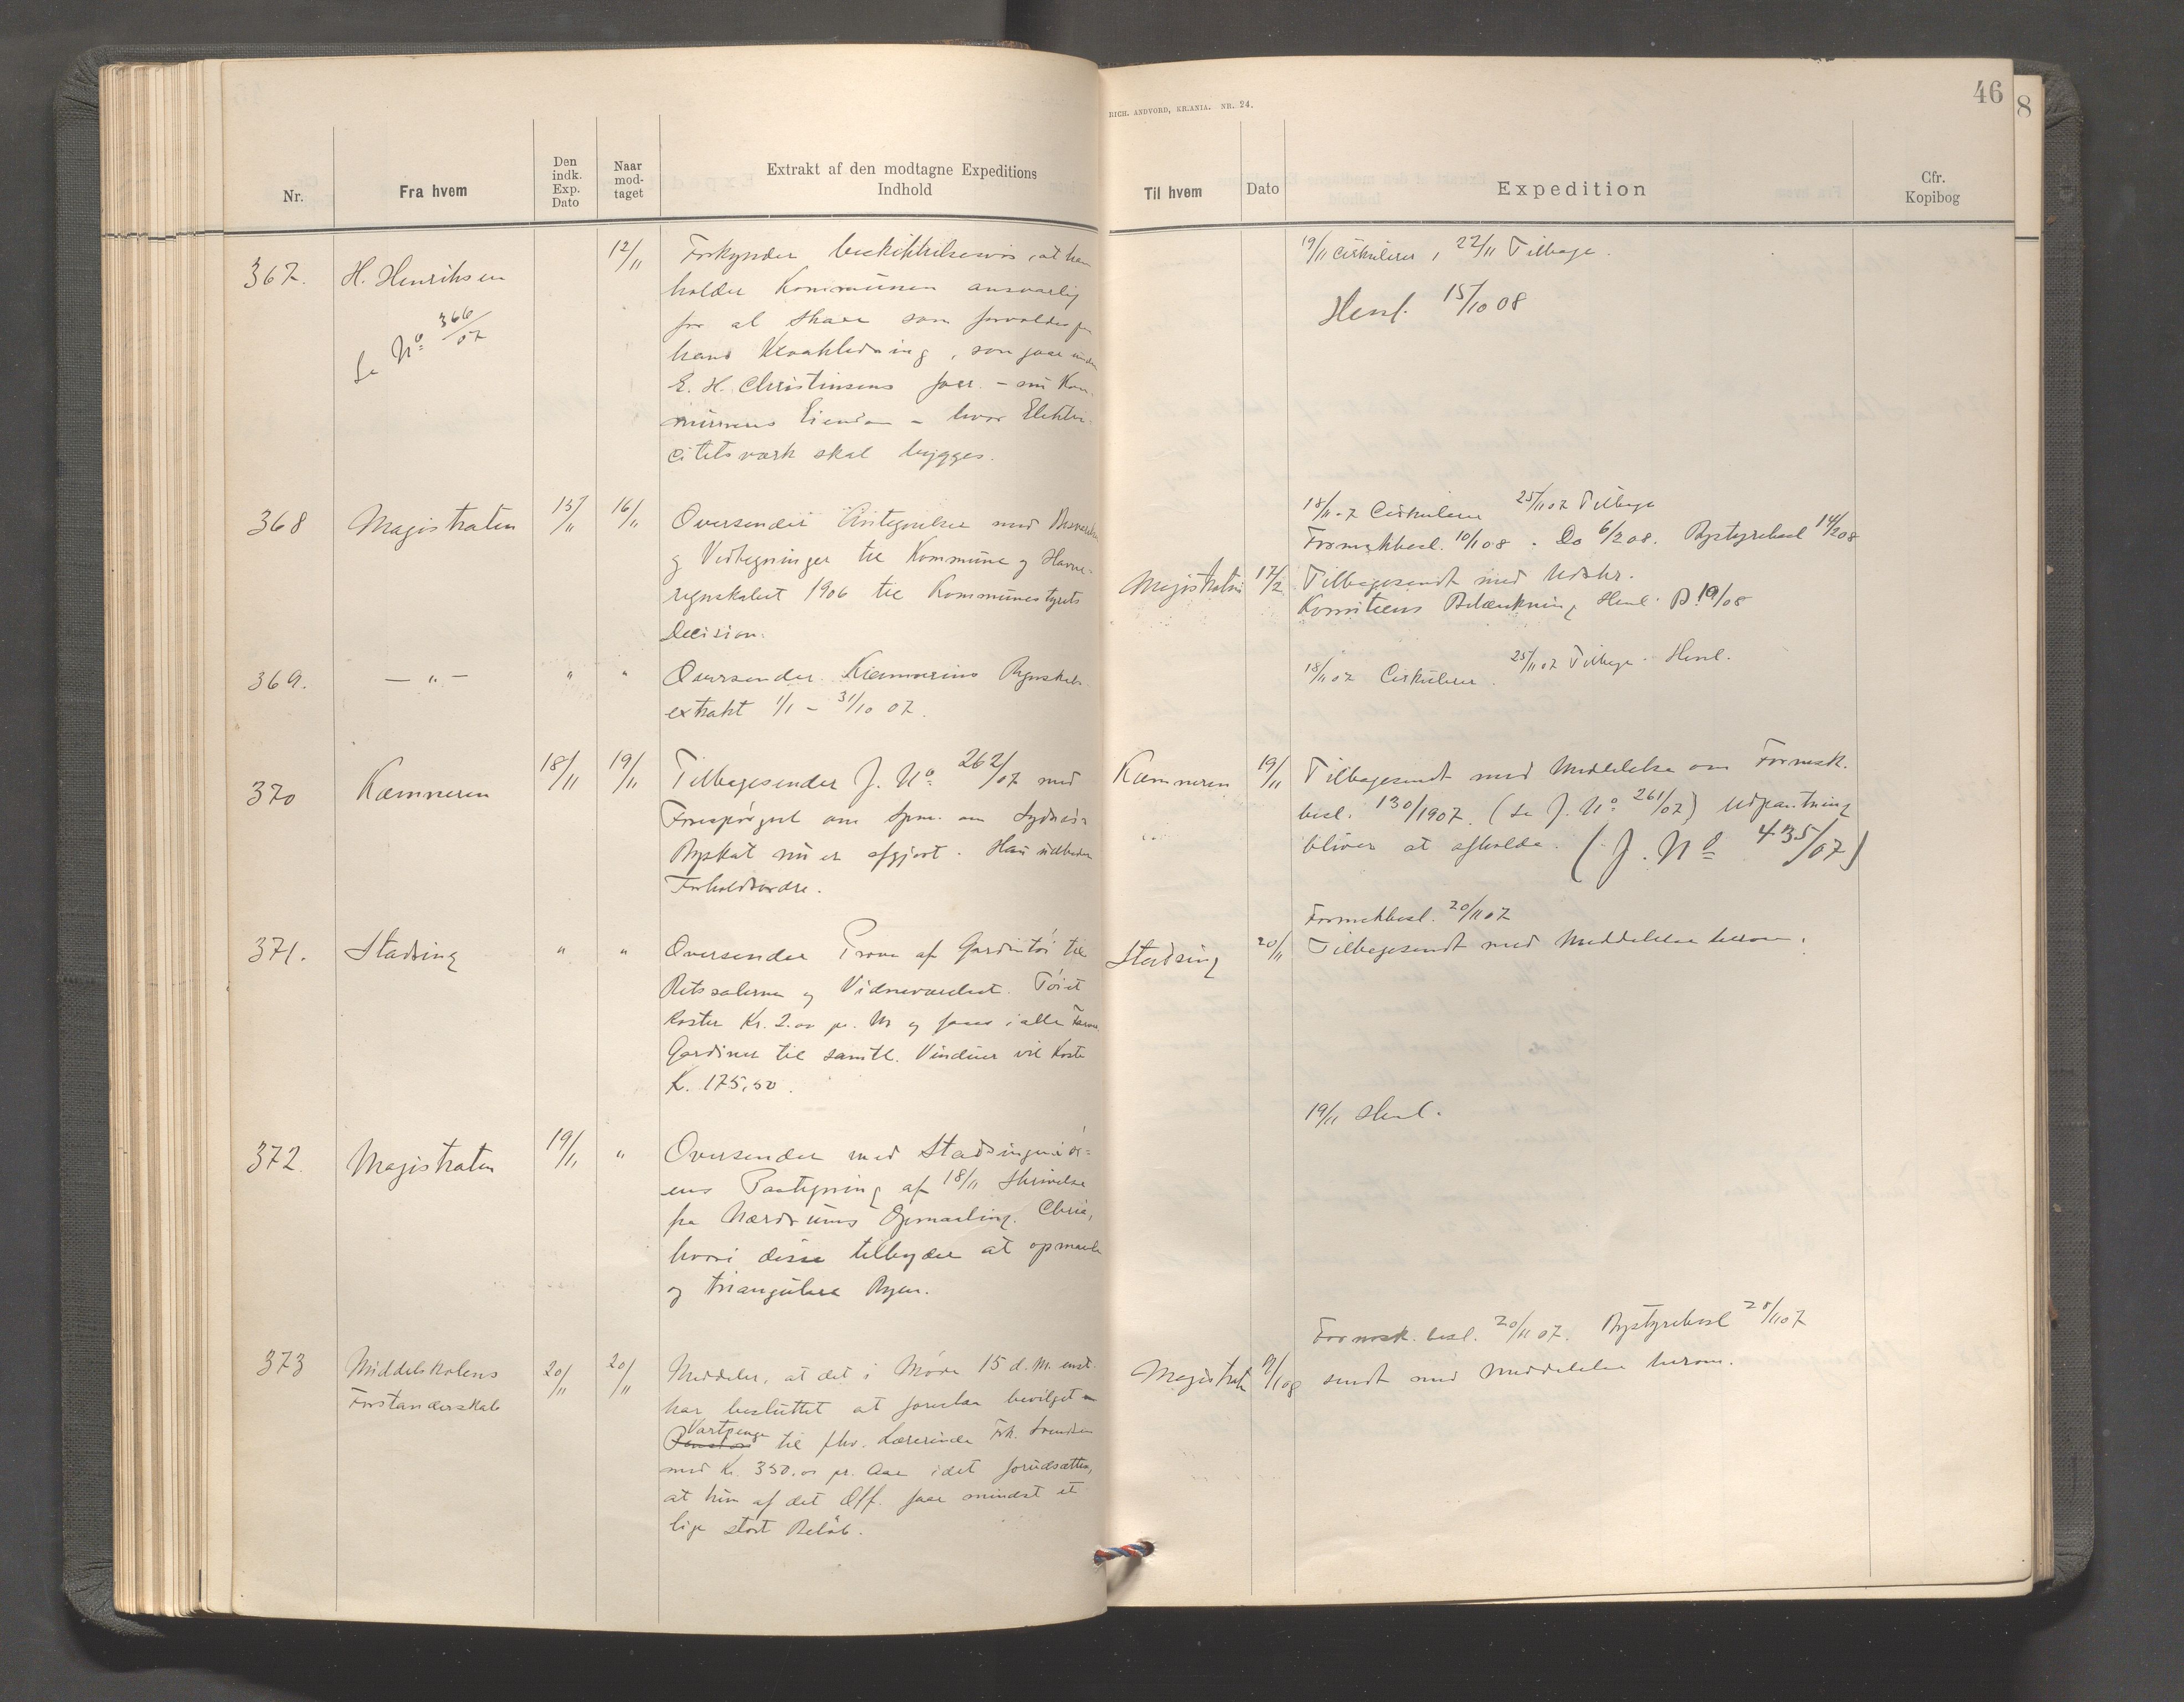 RICH. ANDVORD, KR.ANIA. NR. 24.
46
8
Nr.
Fra hvem
Den indk. Exp. Dato
Naar mod-taget
Extrakt af den modtagne Expeditions Indhold
Til hvem
Dato
Expedition
Cfr. Kopibog
367. H. Henriksen 12/11 Forkynder beskikkelsesvis, at han
holder Kommunen ansvarlig
Se No 366/07
for al Skade som forvoldes paa
hans Kloakledning, som gaar under
E. H. Christinsens forr. - nu Kom-
munens Eiendom - hvor Elektri-
citetsværk skal bygges.
19/11 Cirkulerer, 22/11 Tilbage.
Henl. 15/10 08
368 Magistraten 15/11 16/11 Oversender Antegnelser med
og Vedtegninger til Kommune og Havne-
regnskabet 1906 til Kommunestyrets
Decision.
18/11-7 Cirkulerer 25/11 07 Tilbage
Formskbesl. 10/1 08. Do 6/2 08. Bystyrebesl 14/2 08
Magistraten 17/2 Tilbagesendt med Udskr.
Komiteens Betænkning Henl. 19/08
369. — " — " " Oversender Kæmnerens Regnskabs-
extrakt 1/1 - 31/10 07.
18/11 07 Cirkulerer. 25/11 07 Tilbage. Henl.
370 Kæmneren 18/11 19/11 Tilbagesender J. No 262/07 med
Forespørgsel om Spm. om
Byskat nu er afgjort. Han udbeder
Forholdsordre.
Kæmneren 19/11 Tilbagesendt med Meddelelse om Formsk.
besl. 130/1907. (Se J. No 261/07) Udpantning
bliver at afholde. (J. No 435/07)
371. Stadsing " " Oversender Prøve af Gardintøi til
Retssalerne og Vidneværelset. Tøiet
koster Kr. 2.00 pr. M og faaes i alle Farver
Gardiner til samtl. Vinduer vil koste
K. 175,50.
Formskbesl. 20/11 07
Stadsing 20/11 Tilbagesendt med Meddelelse herom.
372. Magistraten 19/11 " Oversender med Stadsingeniør-
ens Paategning af 18/11 Skrivelse
fra Nærdrums Opmaaling. Chria,
hvori disse tilbyder at opmaale
og triangulere Byen.
19/11 Henl.
373 Middelskolens Forstanderskab 20/11 20/11 Meddeler, at det i Møde 15 d. M. enst.
har besluttet at foreslaa bevilget en
Vartpenge
Pension til fhv. Lærerinde Frk. Svendsen
med Kr. 350.00 pr. Aar idet forudsættes,
at hun af det Off. faar mindst et
lige stort Beløb.
Formsk. besl. 20/11 07. Bystyrebesl 28/11 07
Magistrat 9/1 08 sendt med Meddelelse herom.